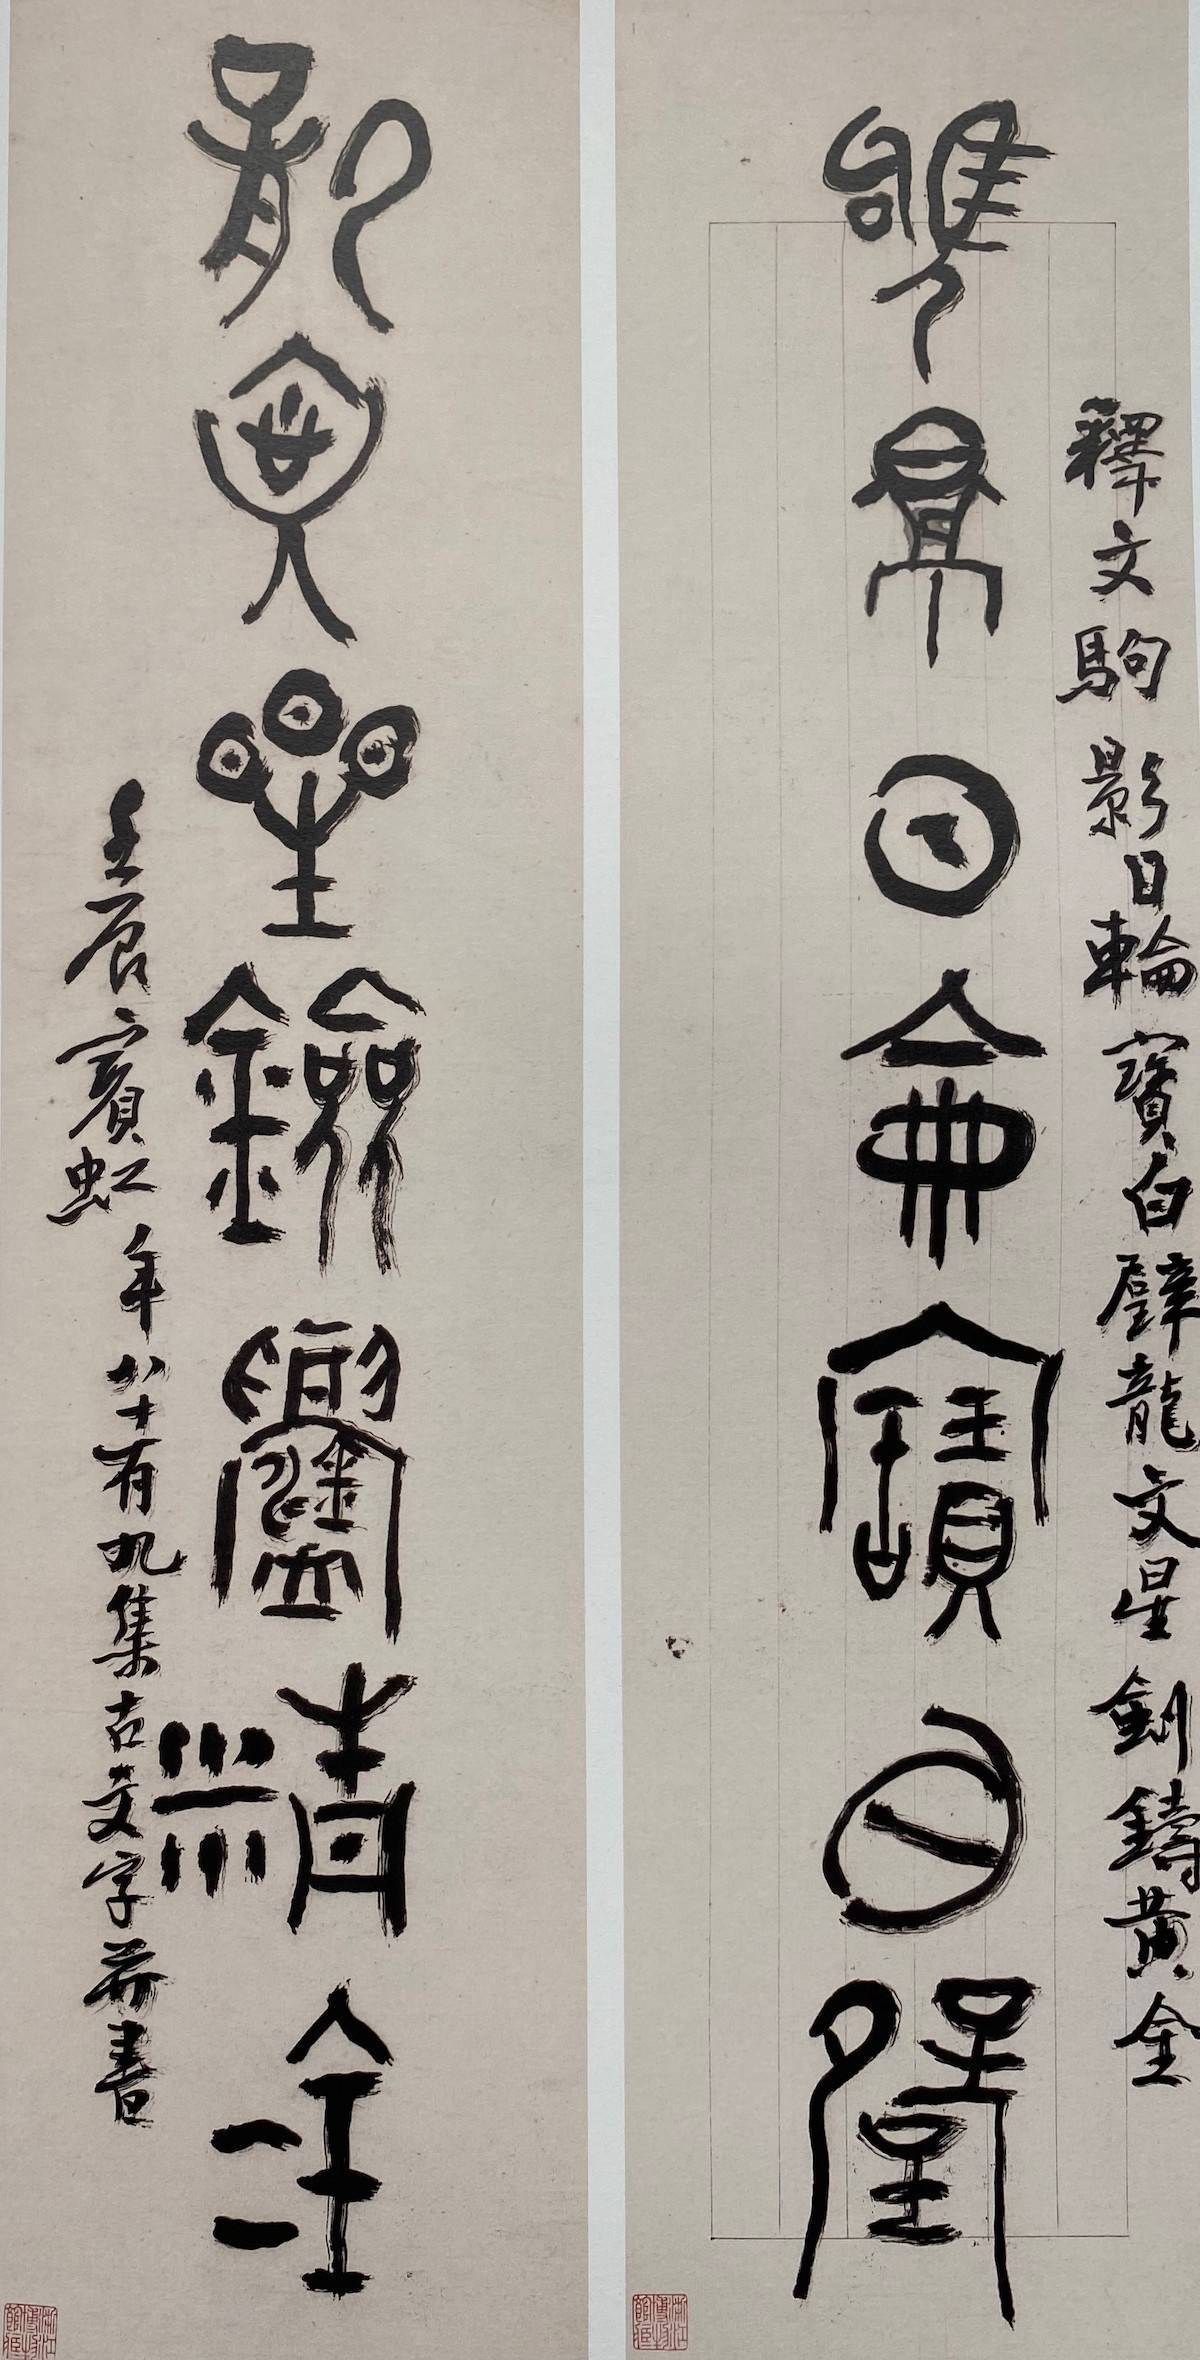 釋文駒影日輪寶白璧龍文星劍鑄黃金
駒影日輪寶白璧
龍文星劍鑄精金
壬辰賓虹年八十有九集古文字并書